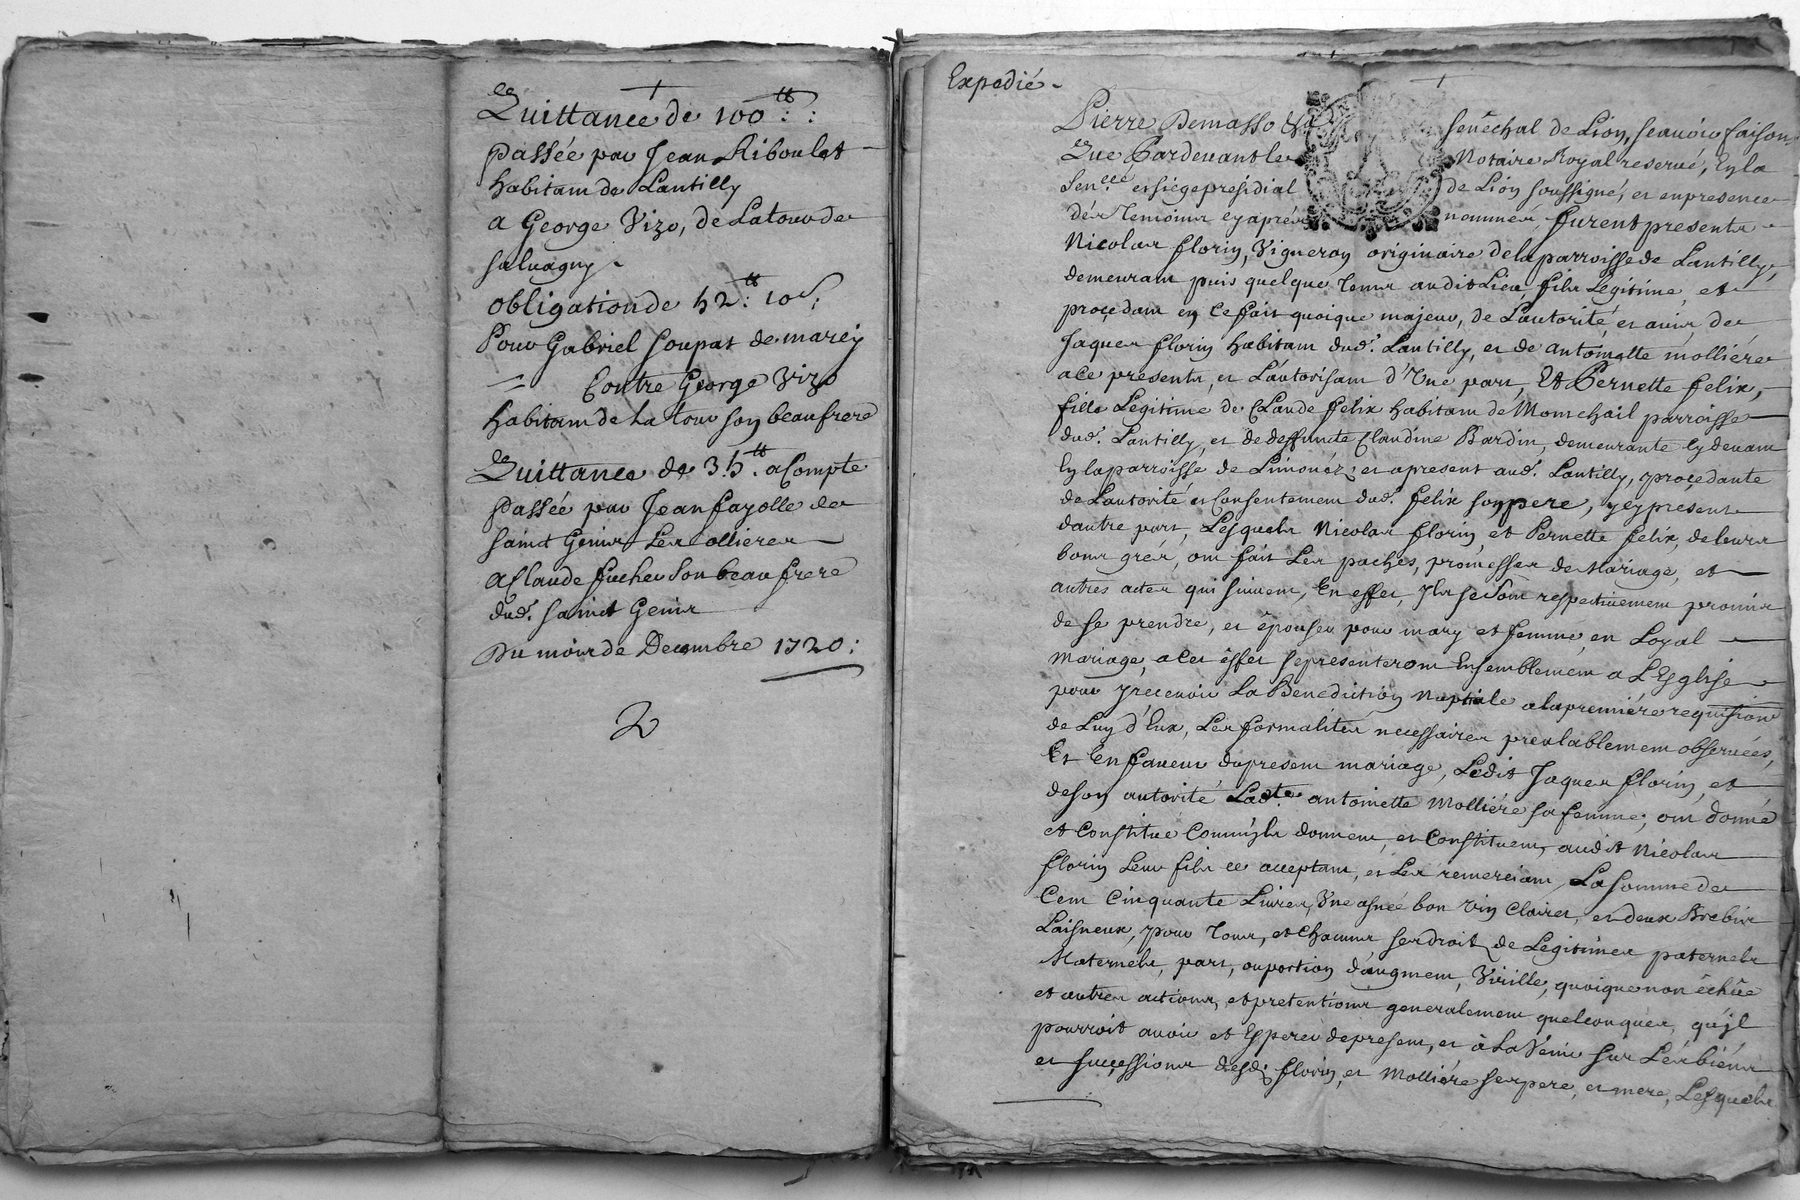 Quittance de 100ₜₜ :
passée par Jean Riboulet
habitant de Lantilly
a George Vizo, de Latour de
salvagny
obligation de 52ₜₜ: 10 s:
Pour Gabriel Soupat de marcy
Contre George Vizo
habitant de La tour son beaufrere
Quittance de 35ₜₜ. a Compte
passée par Jean fayolle de
saint Genis Les ollieres
a Claude fucher son beau frere
dud. saint Genis
Du mois de Decembre 1720 :
2
Expedié
Pierre Demasso senêchal de Lion, scavoir faisons
Que Pardevant le Notaire Royal reservé, En la
Sen.llé et siége présidial de Lion soussigné, et en presence
dés temoins cy aprés nommés, furent presents
Nicolas florin, Vigneron originaire de la parroisse de Lantilly,
demeurant puis quelque tems audit Lieu, fils Legitime, et
proçedant en ce fait quoique majeur, de L'autorité, et avis de
Jaques florin habitant dud. Lantilly, et de antoinette molliére
a ce presents, et L'autorisant d'Une part, Et Pernette felix,
fille Legitime de Claude felix habitant de Montchail parroisse
dud. Lantilly, et de deffuncte Claudine Bardin, demeurante cy devant
En la parroisse de Limonéz, et apresent aud. Lantilly, proçedante
de L'autorité et Consentement dud. felix son pere, ycy present
dautre part, Lesquels Nicolas florin et Pernette felix, de leurs
bons grés, ont fait Les paches, promesses de Mariage, et
autres actes qui suivent, En effet, Yls se sont respectivement promis
de se prendre, et êpouser pour mary et femme, en Loyal
mariage, a cet êffet se presenteront Ensemblement a L'Esglise
pour y recevoir La Benediction Nuptiale a la premiére requisition
de Luy d'Eux, Les formalités necessaires prealablement observées,
Et En faveur du present mariage, Ledit Jaques florin, et
de son autorité Lad.te antoinette Molliére sa femme, ont donné
et Constitué Comm'yls donnent, et Constituent, audit Nicolas
florin Leur fils ce acceptant, et Les remerciant, La somme de
Cent Cinquante Livres, Vne asnée bon vin Clairet, et deux Brebis
Laisneux, pour tous, et chacuns ses droits de Legitimes paternels
Maternels, part, ou portion d'augment, Virille, quoique non échûe
et autres actions, et pretentions generalement quelconques, qu'jl
pourroit avoir et Esperer de present, et à La Venir sur Lés biens
et sucçessions desd. florin, et Molliére ses pere, et mere, Lesquels